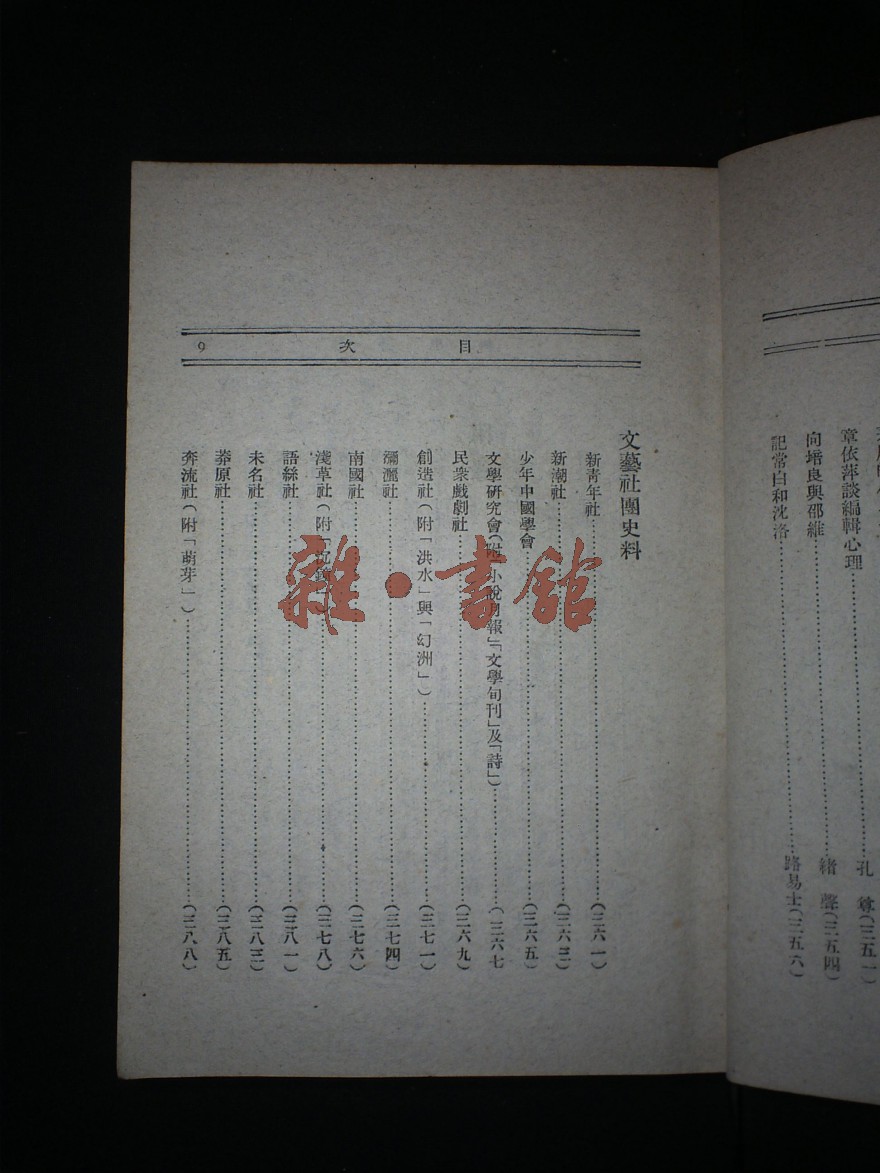 章依萍談編輯心理……孔 尊(三五一)
向培良與邵維……緒 聲(三五四)
記常白和沈洛……路易士(三五六)
目 次 9
文藝社團史料
新靑年社……(三六一)
新潮社……(三六三)
少年中國學會……(三六五)
文學硏究會(附「小說月報」「文學旬刊」及「詩」)……(三六七
民衆戲劇社……(三六九)
創造社(附「洪水」與「幻洲」)……(三七一)
彌灑社……(三七四)
南國社……(三七六)
淺草社(附「沉鐘」)……(三七八)
語絲社……(三八一)
未名社……(三八三)
莽原社……(三八五)
奔流社(附「萌芽」)……(三八八)
雜·書館